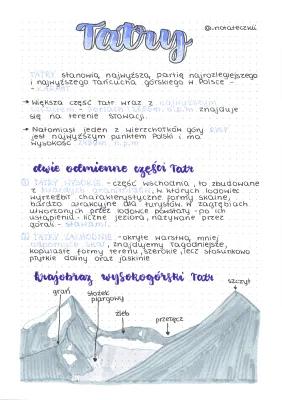 Tatry
@i.notateczkii
TATRY stanowią najwyższą partię najrozleglejszego
i najwyższego łańcucha górskiego w Polsce –
– KARPAT
→ Większa część Tatr wraz z najwyższym
szczytem - Gerlach 2655m n.p.m znajduje
się na terenie Słowacji.
→ Natomiast jeden z wierzchołków góry RYSY
jest najwyższym punktem Polski i ma
wysokość 2499m n.p.m
dwie odmienne części Tatr
① TATRY WYSOKIE - część wschodnia, to zbudowane
z twardych granitów, w których lodowiec
wyrzeźbił charakterystyczne formy skalne,
bardzo atrakcyjne dla turystów. W zagłębiach
utworzonych przez lodowce powstały - po ich
ustąpieniu - liczne jeziora, nazywane przez
górali - stawami.
② TATRY ZACHODNIE - okryte warstwą mniej
odpornych skał, znajdujemy łagodniejsze,
kopulaste formy terenu, szerokie, lecz stosunkowo
płytkie doliny oraz jaskinie
krajobraz wysokogórski Tatr
szczyt
grań
stożek
piargowy
żleb
przełęcz